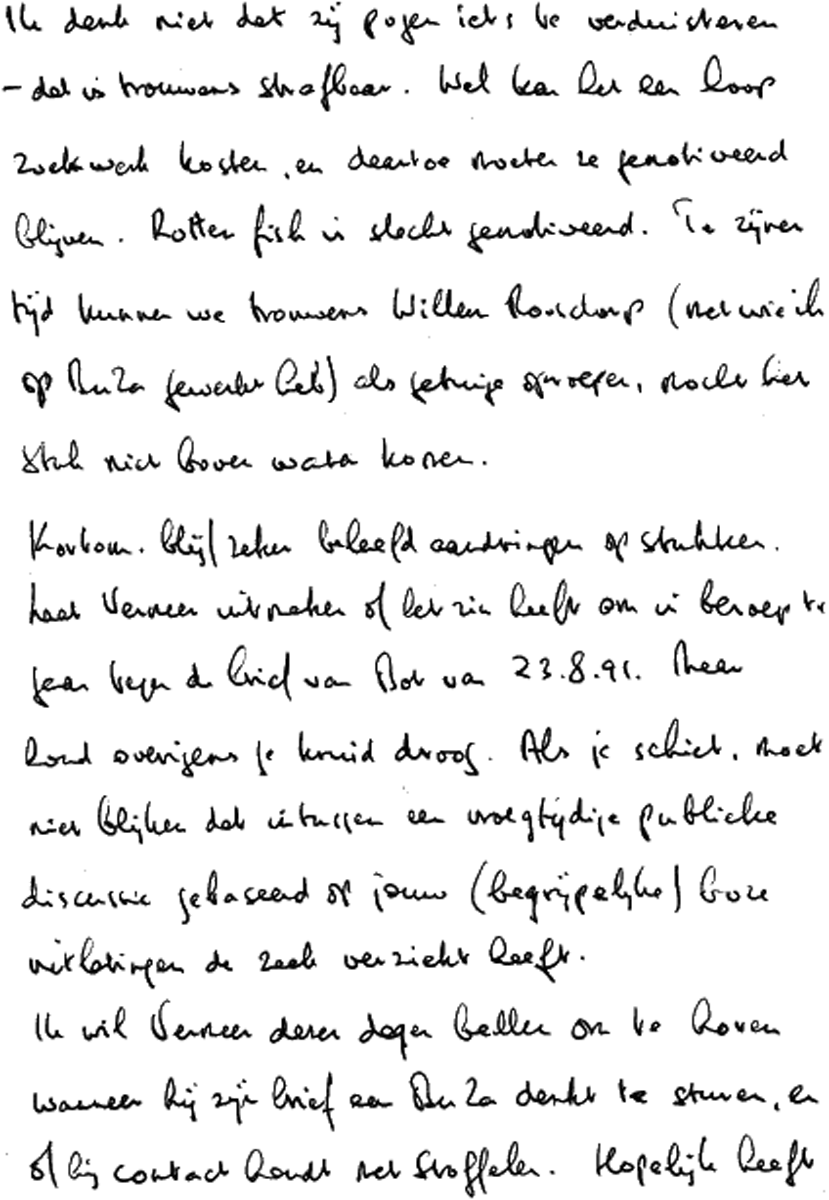 Ik denk niet dat zij pogen iets te verduisteren
– dat is trouwens strafbaar. Wel kan het een hoop
zoekwerk kosten, en daartoe moeten ze gemotiveerd
blijven. Rotten fish is slecht gemotiveerd. Te zijner
tijd kunnen we trouwens Willem (met wie ik
op BuZa gewerkt heb) als getuige oproepen, mocht hier
stuk niet boven water komen.
Kortom. blijf zeker beleefd aandringen op stukken.
Laat Vermeer uitmaken of het zin heeft om in beroep te
gaan tegen de brief van Bot van 23.8.91. Maar
houd overigens je kruid droog. Als je schiet, moet
niet blijken dat intussen een vroegtijdige publieke
discussie gebaseerd op jouw (begrijpelijke) boze
uitlatingen de zaak verziekt heeft.
Ik wil Vermeer dezer dagen bellen om te horen
wanneer hij zijn brief aan BuZa denkt te sturen, en
of hij contact houdt met Stoffelen. Hopelijk heeft